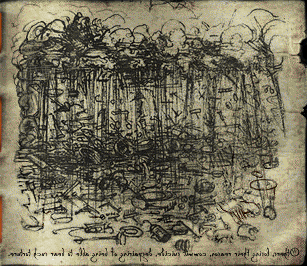 Others, losing their reason, commit suicide, despairing of being able to bear such torture.